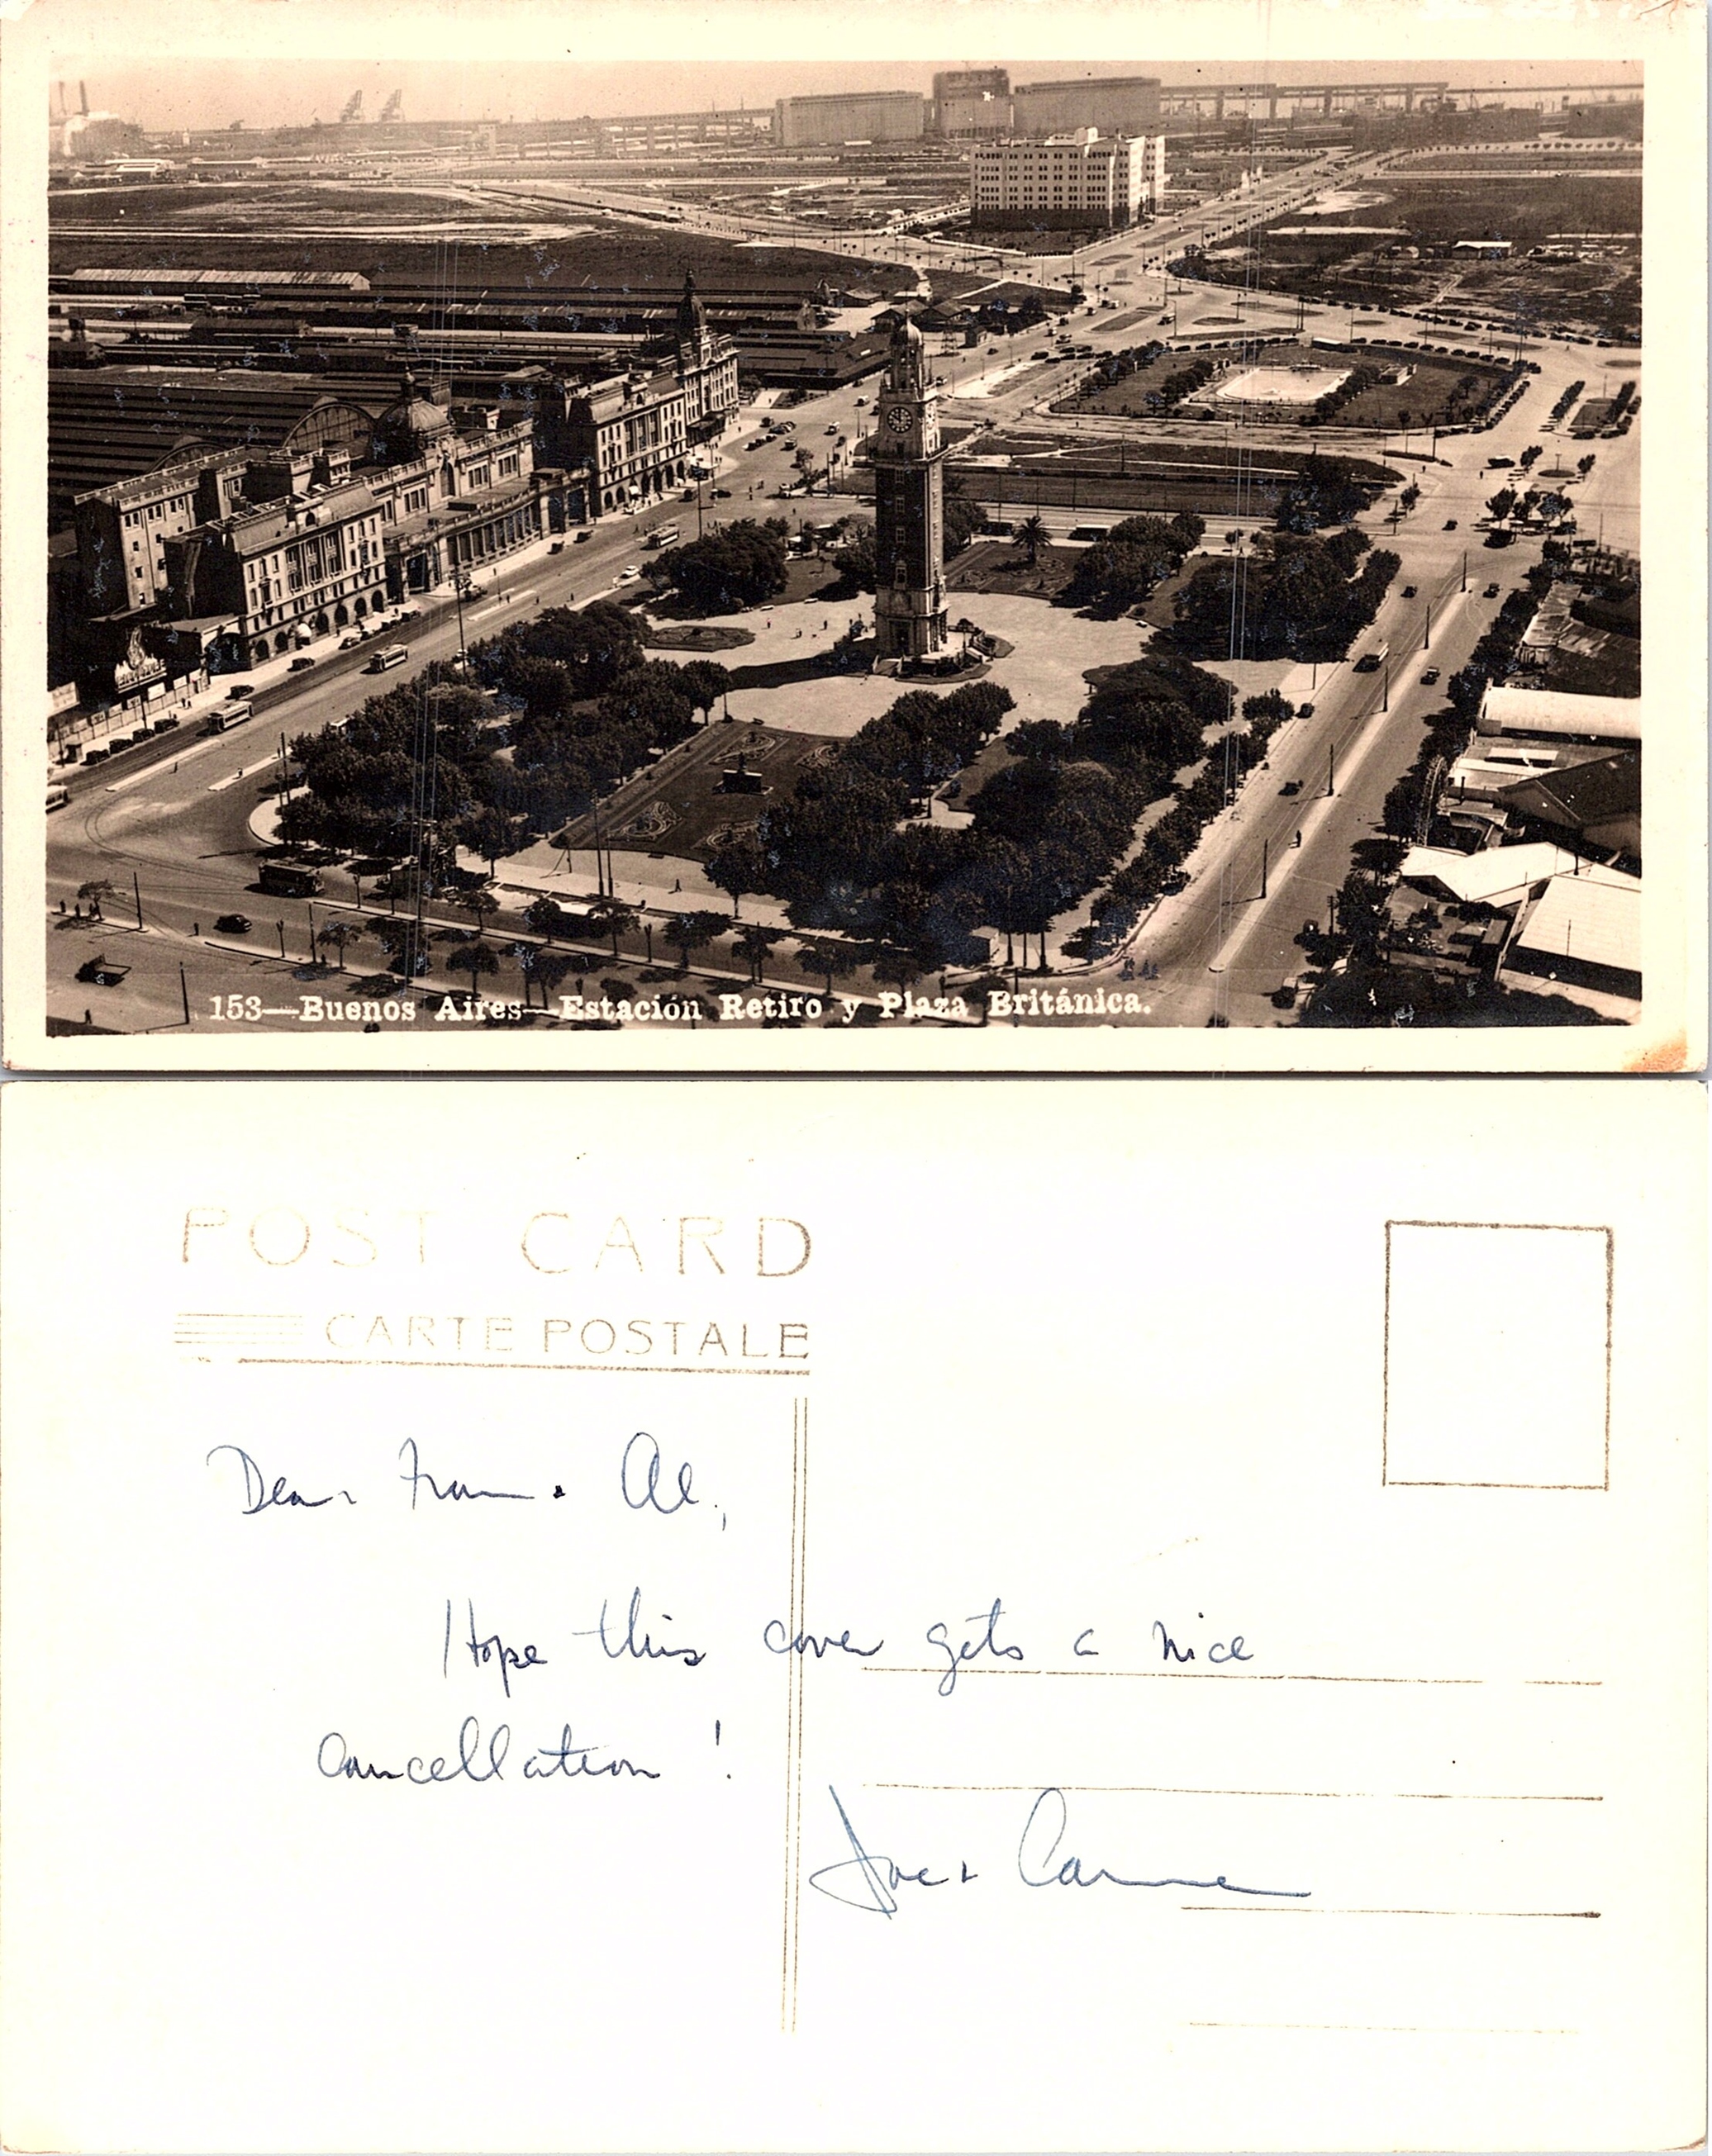 153—Buenos Aires—Estación Retiro y Plaza Británica.
POST CARD
CARTE POSTALE
Dear Fran & Al,
Hope this cover gets a nice
cancellation!
Joe &